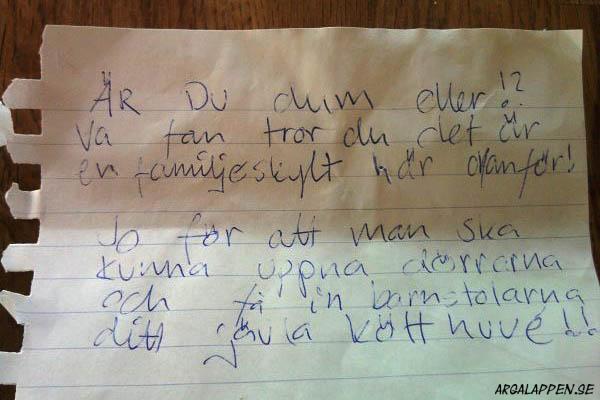 ÄR DU dum eller!?
Va fan tror du det är
en familjeskylt här ovanför!
Jo för att man ska
kunna uppna dörrarna
och få in barnstolarna
ditt jävla kött huve!!
ARGALAPPEN.SE